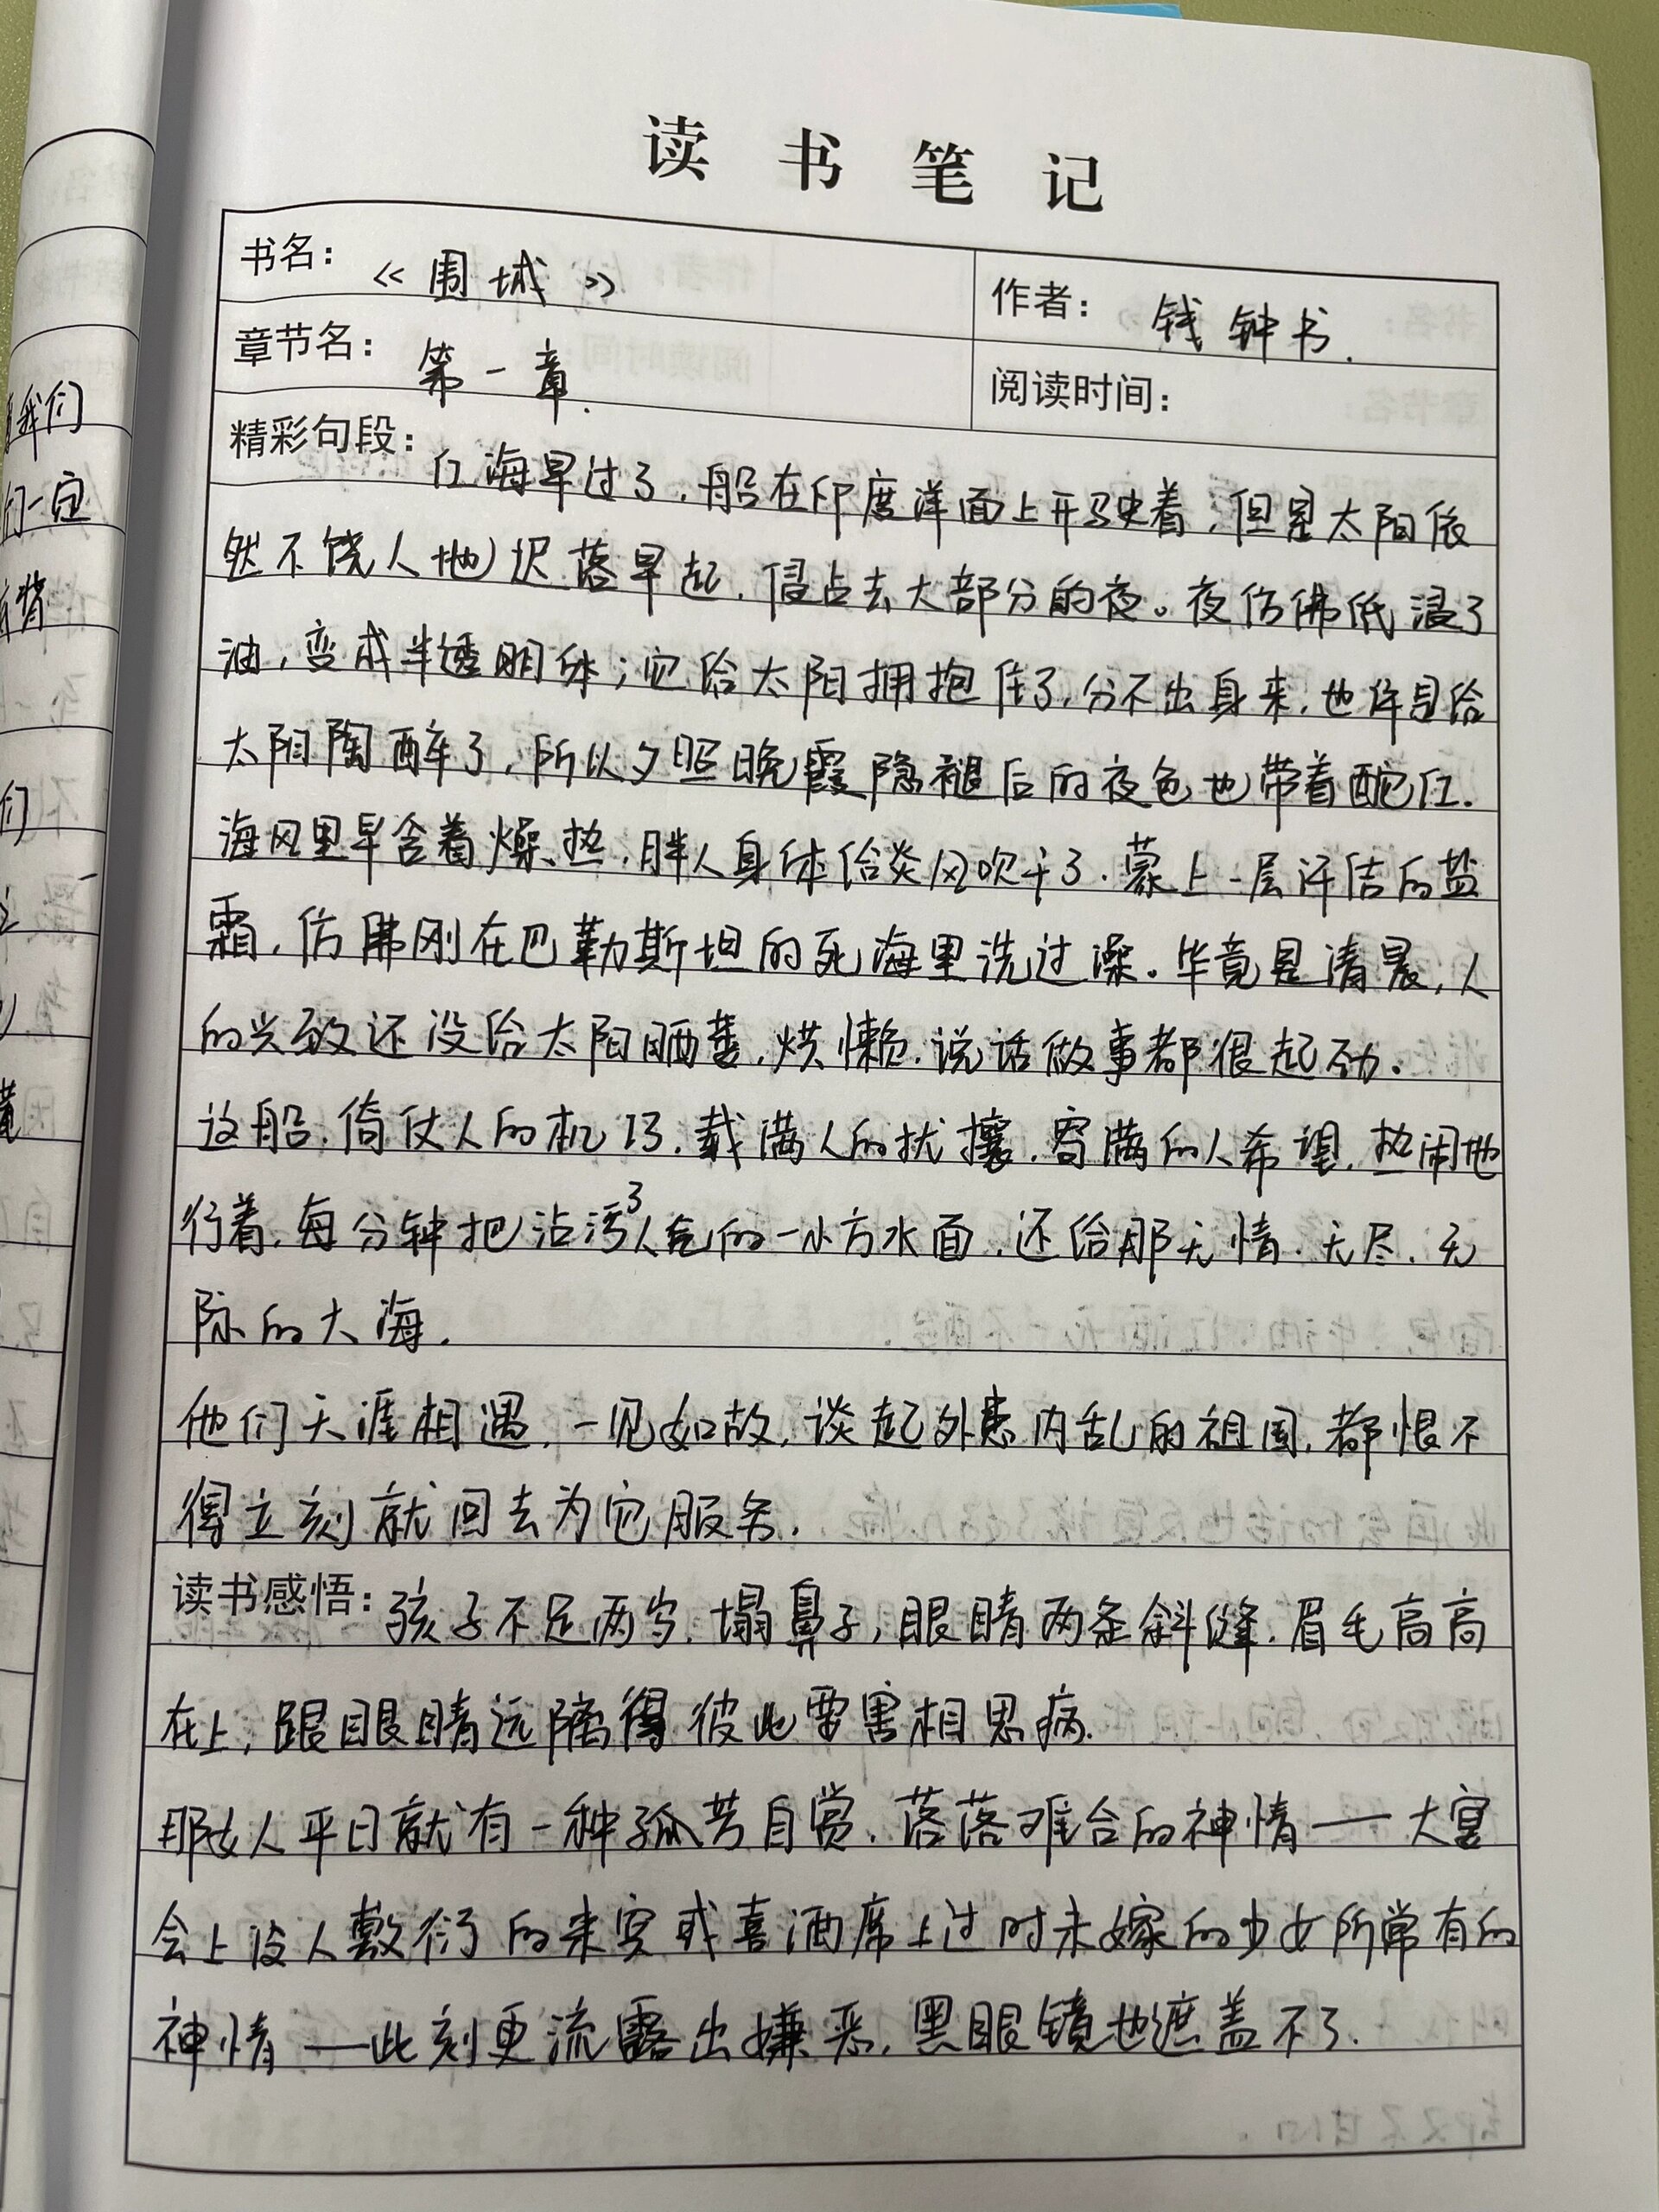 读书笔记
书名：《围城》
作者：钱钟书.
章节名：第一章.
阅读时间：
精彩句段：红海早过了，船在印度洋面上开驶着，但是太阳依
然不饶人地迟落早起，侵占去大部分的夜。夜仿佛纸浸了
油，变成半透明体；它给太阳拥抱住了，分不出身来，也许是给
太阳陶醉了，所以夕照晚霞隐褪后的夜色也带着酡红.
海风里早含着燥热，胖人身体给炎风吹干了，蒙上一层汗结的盐
霜，仿佛刚在巴勒斯坦的死海里洗过澡。毕竟是清晨，人
的兴致还没给太阳晒萎，烘懒，说话做事都很起劲。
这船，倚仗人的机巧，载满人的扰攘，寄满的人希望，热闹地
行着，每分钟把沾污了人气的一小方水面，还给那无情、无尽、无
际的大海.
他们天涯相遇，一见如故，谈起外患内乱的祖国，都恨不
得立刻就回去为它服务.
读书感悟：孩子不足两岁，塌鼻子，眼睛两条斜缝，眉毛高高
在上，跟眼睛远隔得彼此要害相思病.
那女人平日就有一种孤芳自赏、落落难合的神情——大宴
会上没人敷衍的来宾或喜酒席上过时未嫁的少女所常有的
神情——此刻更流露出嫌恶，黑眼镜也遮盖不了.
我们
们一定
背
们